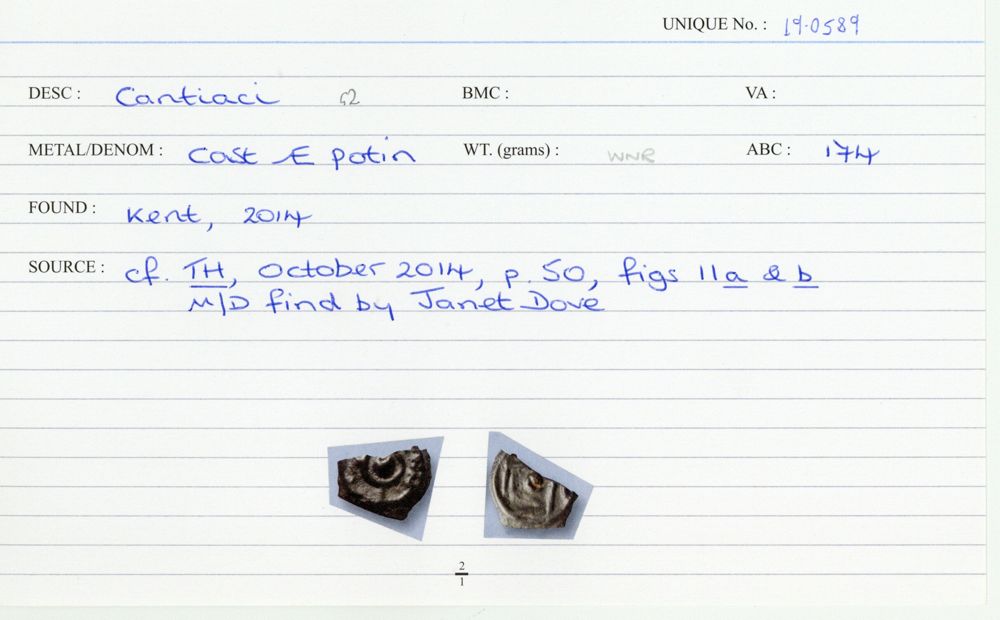 UNIQUE No. : 19.0589
DESC : Cantiaci BMC : VA :
METAL/DENOM : Cast Æ potin WT. (grams) : WNR ABC : 174
FOUND : Kent, 2014
SOURCE : cf. TH, October 2014, p. 50, figs 11a & b
M/D find by Janet Dove
2
1